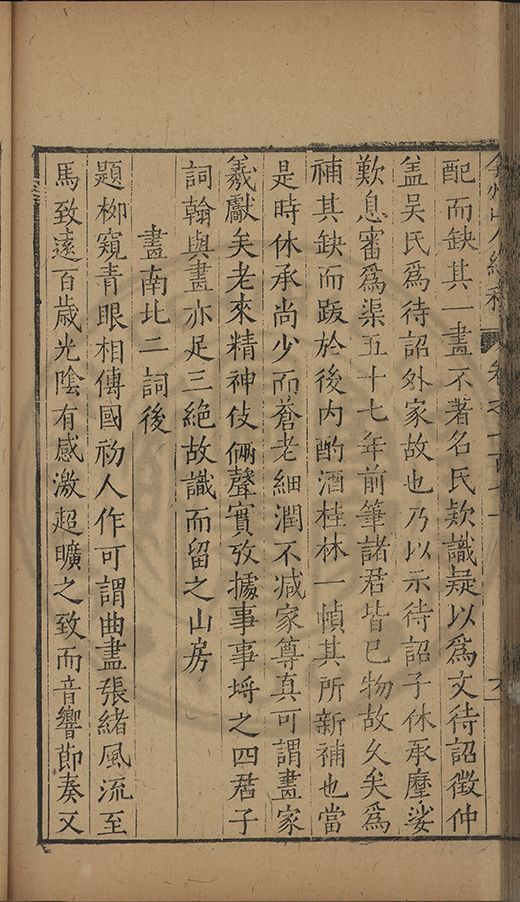 弇州山人續稿 卷之一百七十
配而缺其一畫不著名氏欵識疑以爲文待詔徵仲
盖吳氏爲待詔外家故也乃以示待詔子休承摩娑
歎息審爲渠五十七年前筆諸君皆已物故久矣爲
補其缺而跋於後内酌酒桂林一幀其所新補也當
是時休承尚少而蒼老細潤不减家尊真可謂畫家
羲獻矣老來精神伎倆聲實攷據事事埒之四君子
詞翰與畫亦足三絶故識而留之山房
畫南北二詞後
題柳窺青眼相傳國初人作可謂曲盡張緒風流至
馬致遠百歲光陰有感激超曠之致而音響節奏又